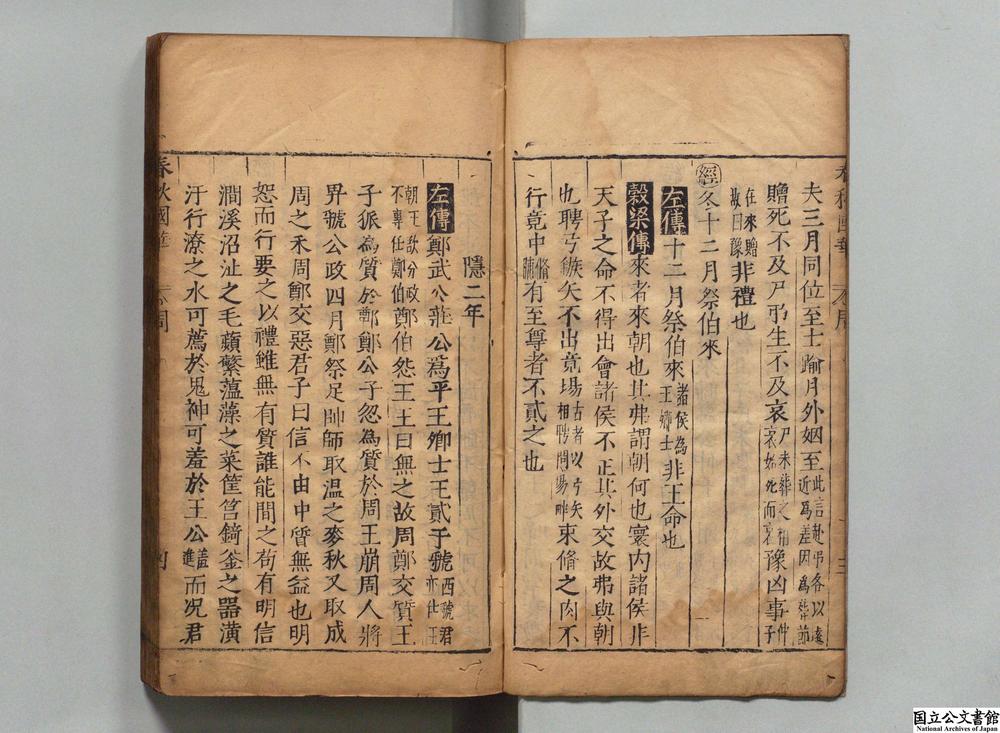 夫三月同位至士踰月外姻至此言赴弔各以遠近為差因為葬節
贈死不及尸弔生不及哀尸未葬之稱哀始死而哀豫凶事仲子
在來賵故曰豫非禮也
經冬十二月祭伯來
左傳十二月祭伯來諸侯為王鄉士非王命也
穀梁傳來者來朝也其弗謂朝何也寰内諸侯非
天子之命不得出會諸侯不正其外交故弗與朝
也聘弓鍭矢不出竟場古者以弓矢相聘問場畔束脩之肉不
行竟中脩脯有至尊者不貳之也
春秋國華
周
三
隱二年
左傳鄭武公莊公為平王卿士王貳于虢西虢君亦仕王
朝王欲分政不專任鄭伯鄭伯怨王王曰無之故周鄭交質王
子狐為質於鄭鄭公子忽為質於周王崩周人將
畀虢公政四月鄭祭足帥師取溫之麥秋又取成
周之禾周鄭交惡君子曰信不由中質無益也明
恕而行要之以禮雖無有質誰能間之茍有明信
澗溪沼沚之毛蘋蘩薀藻之菜筐筥錡釜之器潢
汙行潦之水可薦於鬼神可羞於王公羞進而况君
春秋國華
周
四
国立公文書館
National Archives of Japan